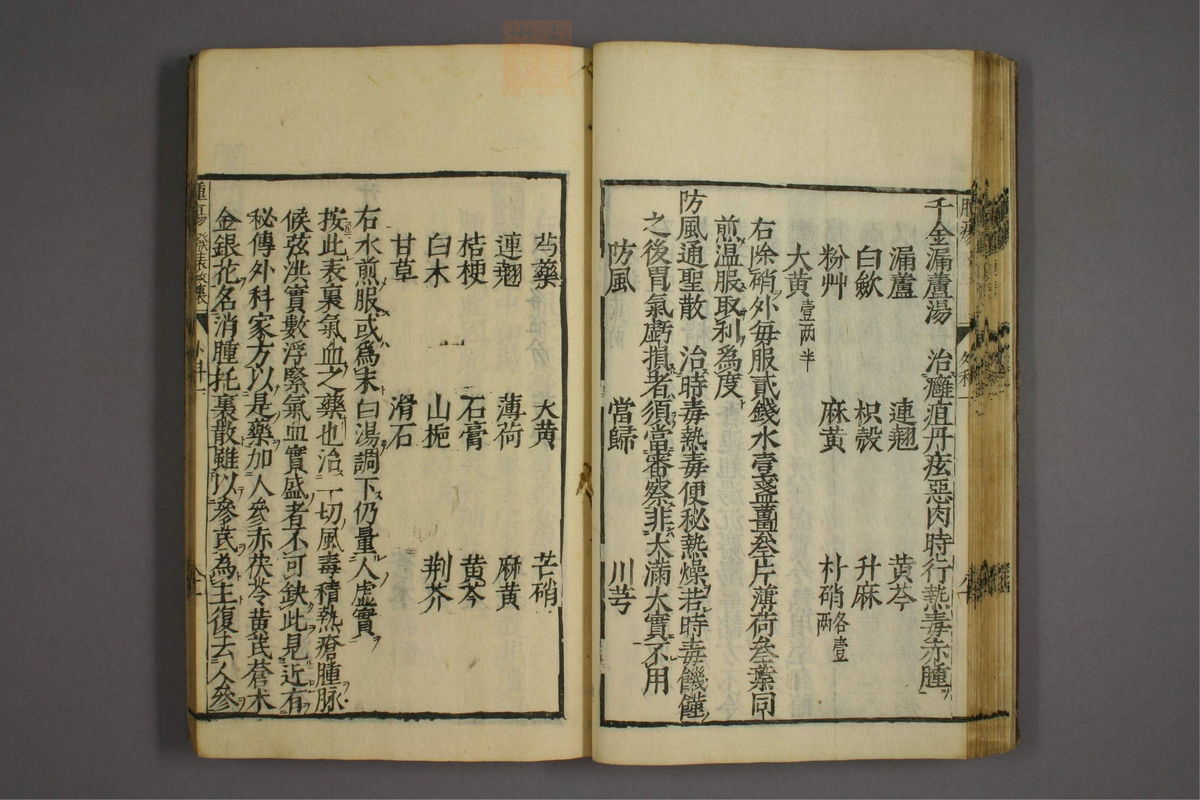 千金漏蘆湯　治癰疽丹㽽惡肉時行熱毒赤腫
漏蘆　連翹　黄芩
白歛　枳殼　升麻
粉艸　麻黄　朴硝各壹兩
大黄壹两半
右除硝外每服貳錢水壹盞薑叄片薄荷叄葉同
煎温服取利爲度
防風通聖散　治時毒熱毒便秘熱燥若時毒饑饉
之後胃氣虧損者須當審察非大滿大實不用
防風　當歸　川芎
芍藥　大黄　芒硝
連翹　薄荷　麻黄
桔梗　石膏　黄芩
白术　山梔　荆芥
甘草　滑石
右水煎服或爲末白湯調下仍量人虛實
按此表裏氣血之藥也治一切風毒積熱瘡腫脉
候弦洪實數浮緊氣血實盛者不可缺此見近有
秘傳外科家方以是藥加人參赤茯苓黄芪蒼术
金銀花名消腫托裏散雖以參芪為主復去人參